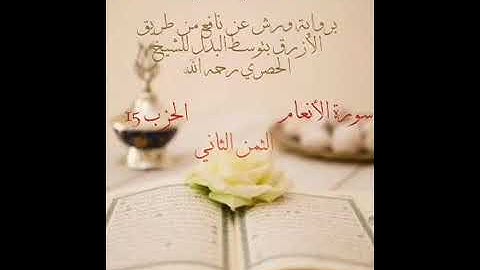 برواية ورش عن نافع من طريق
الأزرق بتوسط البدل للشيخ
الحصري رحمه الله
سورة الأنعام
الحزب 15
الثمن الثاني